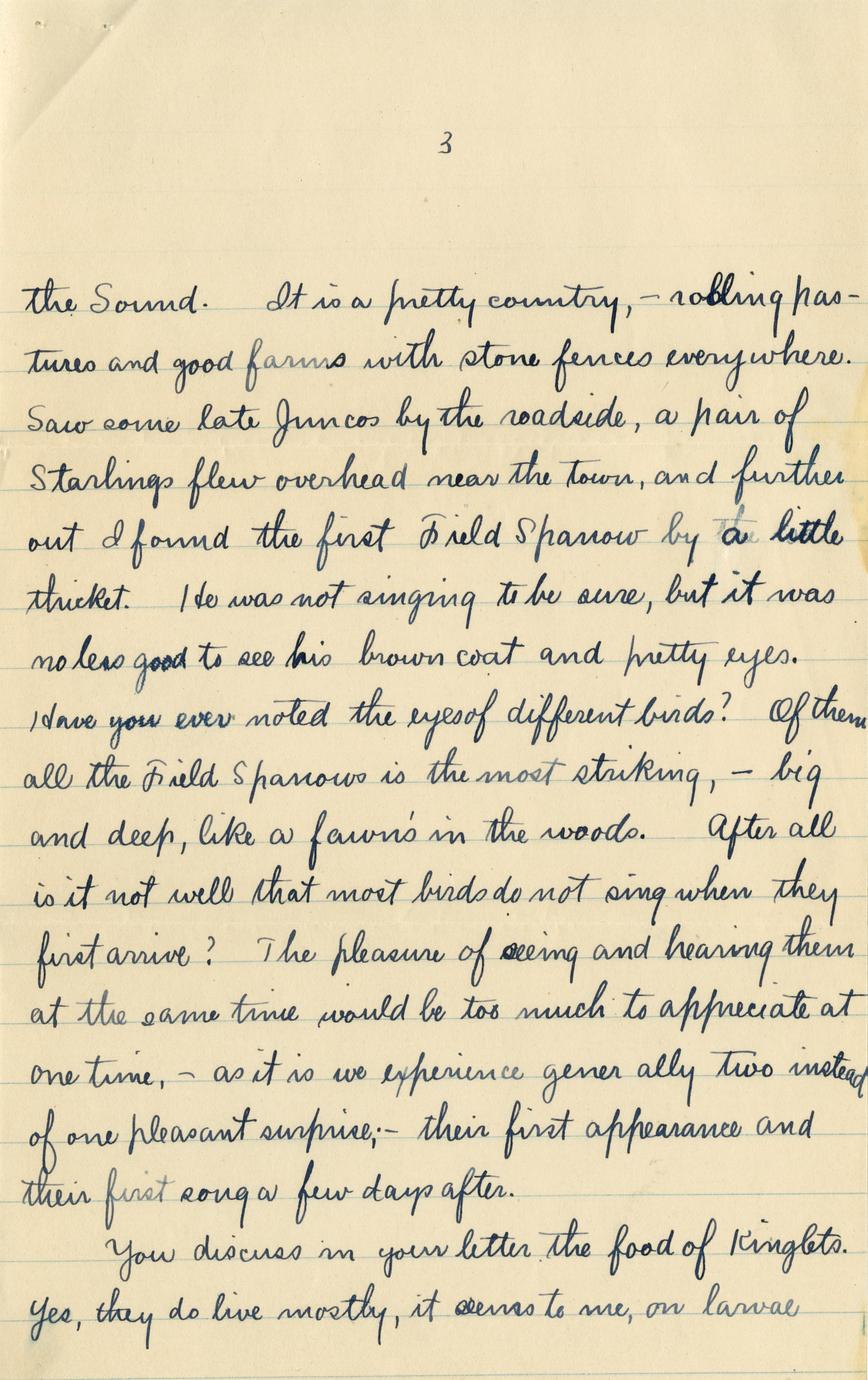 3
the Sound. It is a pretty country, - rolling pas-
tures and good farms with stone fences everywhere.
Saw some late Juncos by the roadside, a pair of
Starlings flew overhead near the town, and further
out I found the first Field Sparrow by a little
thicket. He was not singing to be sure, but it was
no less good to see his brown coat and pretty eyes.
Have you ever noted the eyes of different birds? Of them
all the Field Sparrows is the most striking, - big
and deep, like a fawn's in the woods. After all
is it not well that most birds do not sing when they
first arrive? The pleasure of seeing and hearing them
at the same time would be too much to appreciate at
one time, - as it is we experience generally two instead
of one pleasant surprise;- their first appearance and
their first song a few days after.
You discuss in your letter the food of Kinglets.
Yes, they do live mostly, it seems to me, on larvae